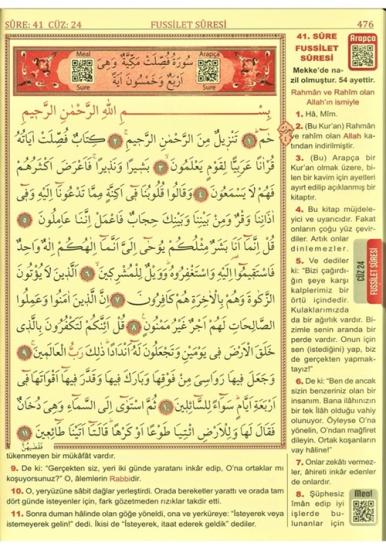 SÛRE: 41 CÜZ: 24
FUSSİLET SÛRESİ
476
Meal
Sure
سُورَةُ فُصِّلَتْ مَكِّيَّةٌ وَهِيَ
اَرْبَعٌ وَخَمْسُونَ اٰيَةً
Arapça
Sure
بِسْمِ اللّٰهِ الرَّحْمٰنِ الرَّحِيمِ
حٰمٓ ﴿١﴾ تَنْزِيلٌ مِنَ الرَّحْمٰنِ الرَّحِيمِ ﴿٢﴾ كِتَابٌ فُصِّلَتْ اٰيَاتُهُ
قُرْاٰنًا عَرَبِيًّا لِقَوْمٍ يَعْلَمُونَ ﴿٣﴾ بَشِيرًا وَنَذِيرًا فَاَعْرَضَ اَكْثَرُهُمْ
فَهُمْ لَا يَسْمَعُونَ ﴿٤﴾ وَقَالُوا قُلُوبُنَا فِى اَكِنَّةٍ مِمَّا تَدْعُونَا اِلَيْهِ وَفِى
اٰذَانِنَا وَقْرٌ وَمِنْ بَيْنِنَا وَبَيْنِكَ حِجَابٌ فَاعْمَلْ اِنَّنَا عَامِلُونَ ﴿٥﴾
قُلْ اِنَّمَا اَنَا بَشَرٌ مِثْلُكُمْ يُوحٰى اِلَىَّ اَنَّمَا اِلٰهُكُمْ اِلٰهٌ وَاحِدٌ
فَاسْتَقِيمُوا اِلَيْهِ وَاسْتَغْفِرُوهُ وَوَيْلٌ لِلْمُشْرِكِينَ ﴿٦﴾ اَلَّذِينَ لَا يُؤْتُونَ
الزَّكٰوةَ وَهُمْ بِالْاٰخِرَةِ هُمْ كَافِرُونَ ﴿٧﴾ اِنَّ الَّذِينَ اٰمَنُوا وَعَمِلُوا
الصَّالِحَاتِ لَهُمْ اَجْرٌ غَيْرُ مَمْنُونٍ ﴿٨﴾ قُلْ اَئِنَّكُمْ لَتَكْفُرُونَ بِالَّذِى
خَلَقَ الْاَرْضَ فِى يَوْمَيْنِ وَتَجْعَلُونَ لَهُ اَنْدَادًا ذٰلِكَ رَبُّ الْعَالَمِينَ ﴿٩﴾
وَجَعَلَ فِيهَا رَوَاسِىَ مِنْ فَوْقِهَا وَبَارَكَ فِيهَا وَقَدَّرَ فِيهَا اَقْوَاتَهَا فِى
اَرْبَعَةِ اَيَّامٍ سَوَاءً لِلسَّائِلِينَ ﴿١٠﴾ ثُمَّ اسْتَوٰى اِلَى السَّمَاءِ وَهِىَ دُخَانٌ
فَقَالَ لَهَا وَلِلْاَرْضِ ائْتِيَا طَوْعًا اَوْ كَرْهًا قَالَتَا اَتَيْنَا طَائِعِينَ ﴿١١﴾
41. SÛRE
FUSSİLET
SÛRESİ
Arapça
Mekke'de na-
zil olmuştur. 54 ayettir.
Rahmân ve Rahîm olan
Allah'ın ismiyle
1. Hâ, Mîm.
2. (Bu Kur'an) Rahmân
ve rahîm olan Allah ka-
tından indirilmiştir.
3. (Bu) Arapça bir
Kur'an olmak üzere, bi-
len bir kavim için ayetleri
ayırt edilip açıklanmış bir
kitaptır.
4. Bu kitap müjdele-
yici ve uyarıcıdır. Fakat
onların çoğu yüz çevir-
diler. Artık onlar
dinlemezler.
5. Ve dediler
ki: "Bizi çağırdı-
ğın şeye karşı
kalplerimiz bir
örtü içindedir.
Kulaklarımızda
da bir ağırlık vardır. Bi-
zimle senin aranda bir
perde vardır. Onun için
sen (istediğini) yap, biz
de gerçekten yapmak-
tayız!"
6. De ki: "Ben de ancak
sizin benzeriniz olan bir
insanım. Bana ilâhınızın
bir tek İlâh olduğu vahiy
olunuyor. Öyleyse O'na
yönelin, O'ndan mağfiret
dileyin. Ortak koşanların
vay hâline!"
7. Onlar zekâtı vermez-
ler, âhireti inkâr edenler
de onlardır.
8. Şüphesiz
îman edip iyi
işlerde bu-
lunanlar için
Meal
CÜZ 24
FUSSİLET SÛRESİ
tükenmeyen bir mükâfat vardır.
9. De ki: "Gerçekten siz, yeri iki günde yaratanı inkâr edip, O'na ortaklar mı
koşuyorsunuz?" O, âlemlerin Rabbidir.
10. O, yeryüzüne sâbit dağlar yerleştirdi. Orada bereketler yarattı ve orada tam
dört günde isteyenler için, fark gözetmeden rızıklar takdir etti.
11. Sonra duman hâlinde olan göğe yöneldi, ona ve yerküreye: "İsteyerek veya
istemeyerek gelin!" dedi. İkisi de "İsteyerek, itaat ederek geldik" dediler.